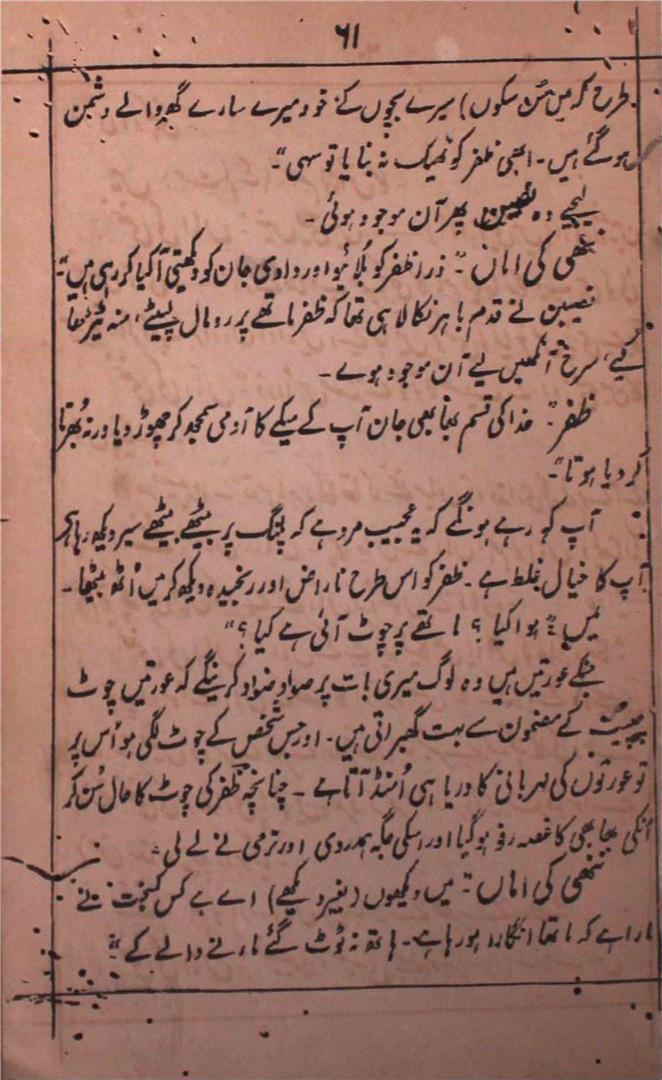 ۶۱
طرح کہ میں سُن سکوں) میرے بچوں کے خود میرے سارے گھر والے دشمن
ہو گئے ہیں۔ ابھی ظفر کو ٹھیک نہ بنایا تو سہی"۔
لیجے وہ نصیبن پھر آن موجود ہوئی۔
ننھی کی اماں۔" ذرا ظفر کو بُلائیو اور دادی جان کو دیکھتی آ کیا کر رہی ہیں"۔
نصیبن نے قدم باہر نکالا ہی تھا کہ ظفر ماتھے پر رومال لپیٹے، منہ ٹیڑھا
کیے، سرخ آنکھیں لیے آن موجود ہوے۔
ظفر۔" خدا کی قسم بھابھی جان آپ کے میکے کا آدمی سمجھ کر چھوڑ دیا ورنہ بُھرتا
کر دیا ہوتا"۔
آپ کہہ رہے ہونگے کہ یہ عجیب مرد ہے کہ پلنگ پر بیٹھے بیٹھے سیر دیکھ رہا ہے
آپ کا خیال غلط ہے۔ ظفر کو اس طرح ناراض اور رنجیدہ دیکھ کر میں اُٹھ بیٹھا۔
میں۔" ہوا کیا؟ ماتھے پر چوٹ آئی ہے کیا؟"
جنکے عورتیں ہیں وہ لوگ میری بات پر صواد ضواد کرینگے کہ عورتیں چوٹ
چپیٹ کے مضمون سے بہت گھبراتی ہیں۔ اور جس شخص کے چوٹ لگی ہو اُس پر
تو عورتوں کی مہربانی کا دریا ہی اُمنڈ آتا ہے۔ چنانچہ ظفر کی چوٹ کا حال سُن کر
اُنکی بھابھی کا غصہ رفو ہو گیا اور اسکی جگہ ہمدردی اور نرمی نے لے لی۔
ننھی کی اماں۔" میں دیکھوں (بغیر دیکھے) اے ہے کس کمبخت نے
مارا ہے کہ ماتھا انگارہ ہو رہا ہے۔ ہاتھ نہ ٹوٹ گئے مارنے والے کے"۔